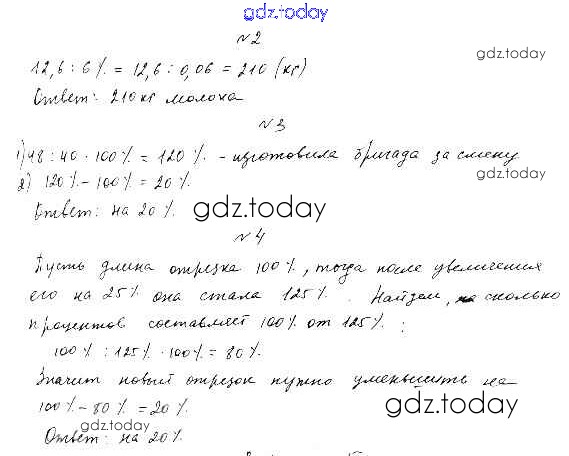 gdz.today
№2
gdz.today
12,6 : 6% = 12,6 : 0,06 = 210 (кг)
Ответ: 210 кг молока
№3
1) 48 : 40 · 100% = 120% - изготовила бригада за смену
gdz.today
2) 120% - 100% = 20%.
Ответ: на 20%.
gdz.today
№4
Пусть длина отрезка 100%, тогда после увеличения
его на 25% она стала 125%. Найдем, на сколько
процентов составляет 100% от 125% :
100% : 125% · 100% = 80%.
Значит новый отрезок нужно уменьшить на
100% - 80% = 20%.
gdz.today
Ответ: на 20%.